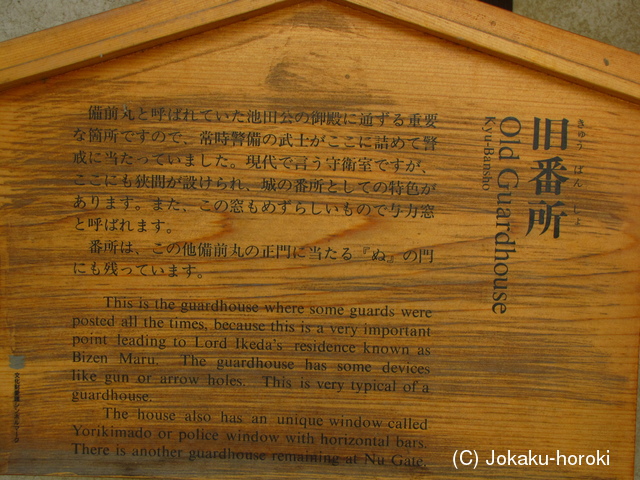 きゅう ばん しょ
旧番所
Old Guardhouse
Kyu-Bansho
備前丸と呼ばれていた池田公の御殿に通ずる重要
な箇所ですので、常時警備の武士がここに詰めて警
戒に当たっていました。現代で言う守衛室ですが、
ここにも狭間が設けられ、城の番所としての特色が
あります。また、この窓もめずらしいもので与力窓
と呼ばれます。
番所は、この他備前丸の正門に当たる『ぬ』の門
にも残っています。
This is the guardhouse where some guards were
posted all the times, because this is a very important
point leading to Lord Ikeda's residence known as
Bizen Maru. The guardhouse has some devices
like gun or arrow holes. This is very typical of a
guardhouse.
The house also has an unique window called
Yorikimado or police window with horizontal bars.
There is another guardhouse remaining at Nu Gate.
(C) Jokaku-horoki